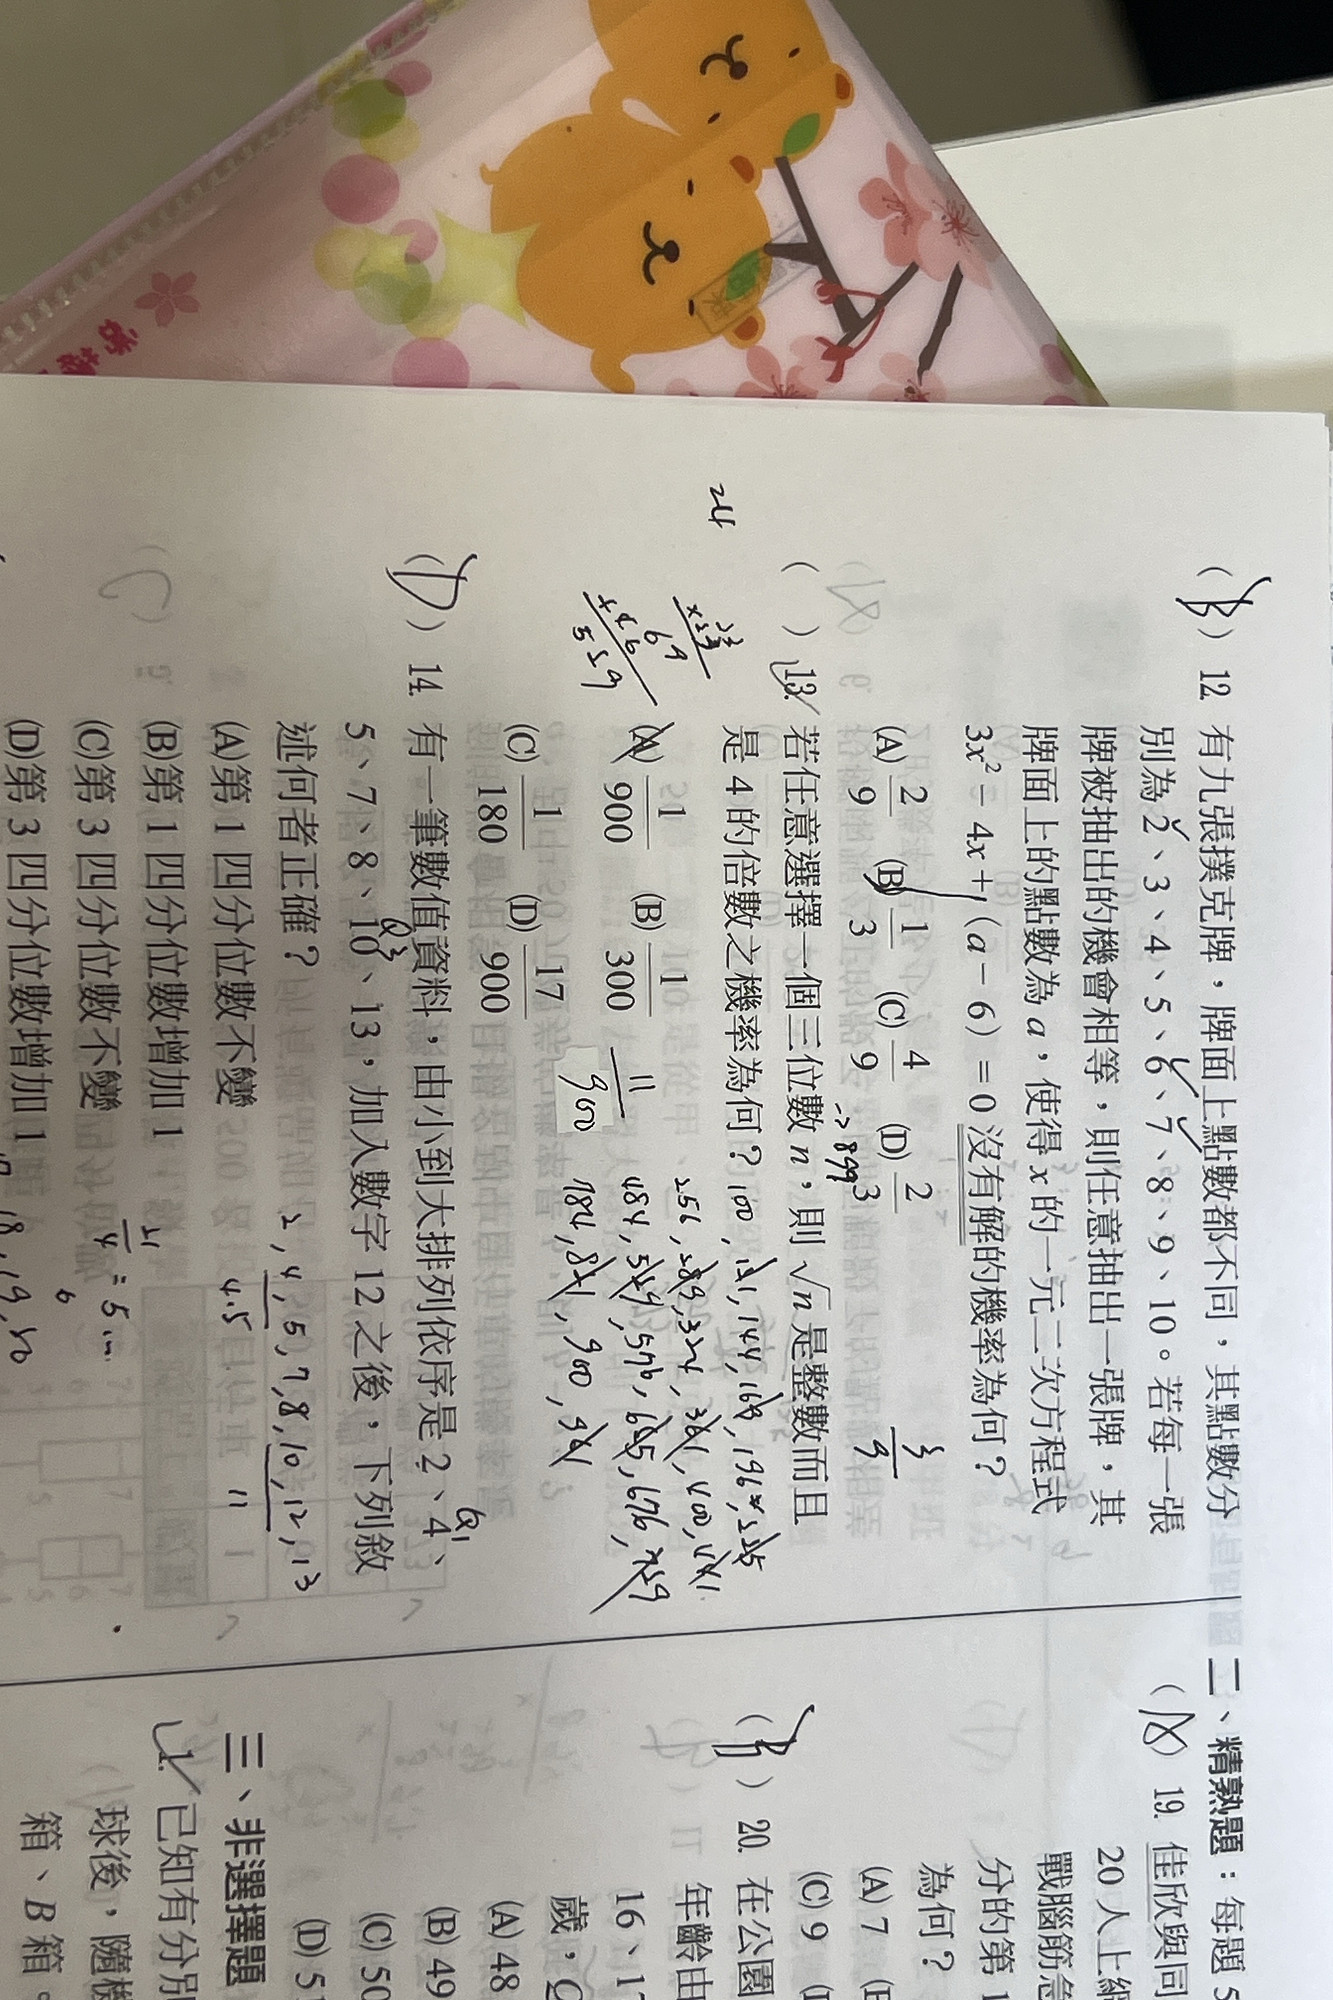 (B) 12. 有九張撲克牌，牌面上點數都不同，其點數分
別為 2、3、4、5、6、7、8、9、10。若每一張
牌被抽出的機會相等，則任意抽出一張牌，其
牌面上的點數為 a，使得 x 的一元二次方程式
3x² − 4x + (a − 6) = 0 沒有解的機率為何？
(A) 2/9 (B) 1/3 (C) 4/9 (D) 2/3
3/9
→899
( ) 13. 若任意選擇一個三位數 n，則 √n 是整數而且
是 4 的倍數之機率為何？
(A) 1/900 (B) 1/300
(C) 1/180 (D) 17/900
11/900
100, 121, 144, 169, 196, 225
256, 289, 324, 361, 400, 441
484, 529, 576, 625, 676, 729
784, 841, 900, 961
24
23
×23
69
+46
529
(D) 14. 有一筆數值資料，由小到大排列依序是 2、4、
5、7、8、10、13，加入數字 12 之後，下列敘
述何者正確？
Q1
Q3
(A)第 1 四分位數不變
(B)第 1 四分位數增加 1
(C)第 3 四分位數不變
(D)第 3 四分位數增加 1
2, 4, 5, 7, 8, 10, 12, 13
4.5 11
二、精熟題：每題 5
19. 佳欣與同
20 人上網
戰腦筋急
分的第 1
為何？
(A) 7
(C) 9
(B) 20. 在公園
年齡由
16、1
歲，
(A) 48
(B) 49
(C) 50
(D) 5
三、非選擇題
1. 已知有分別
球後，隨機
箱、B 箱